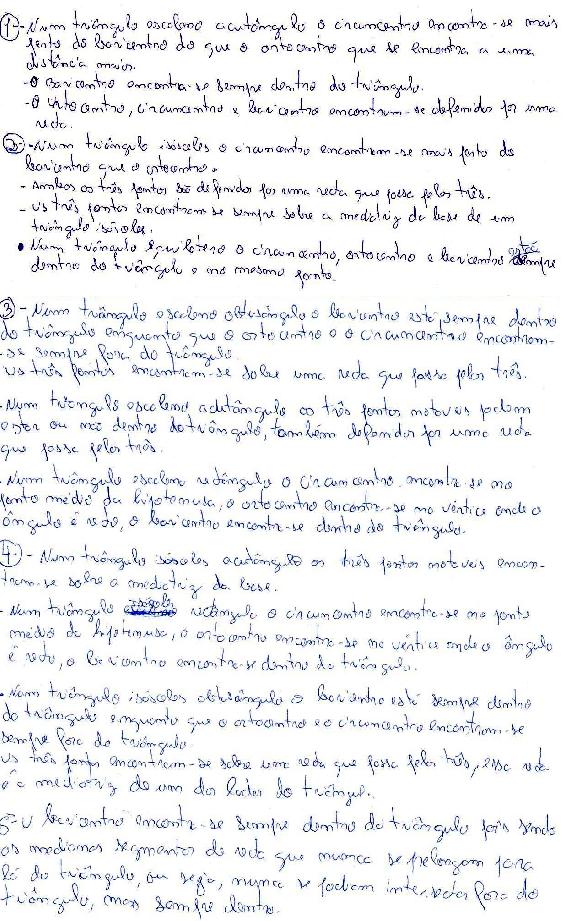 1 - Num triângulo escaleno acutângulo o circuncentro encontra-se mais
perto do baricentro do que o ortocentro que se encontra a uma
distância maior.
- O Baricentro encontra-se sempre dentro do triângulo.
- O ortocentro, circuncentro e baricentro encontram-se definidos por uma
reta.
2 - Num triângulo isósceles o circuncentro encontram-se mais perto do
baricentro que o ortocentro.
- Ambos os três pontos são definidos por uma recta que passa pelos três.
- Os três pontos encontram-se sempre sobre a mediatriz da base de um
triângulo isósceles.
• Num triângulo equilátero o circuncentro, ortocentro e baricentro está sempre
dentro do triângulo e no mesmo ponto.
3 - Num triângulo escaleno obtusângulo o baricentro está sempre dentro
do triângulo enquanto que o ortocentro e o circuncentro encontram-
-se sempre fora do triângulo.
Os três pontos encontram-se sobre uma reda que passa pelos três.
. Num triangulo escaleno acutângulo os três pontos notaveis podem
estar ou não dentro do triângulo, também definidos por uma reda
que passa pelos três.
. Num triângulo escaleno retângulo o circuncentro encontra-se no
ponto médio da hipotenusa, o ortocentro encontra-se no vértice onde o
ângulo é reto, o baricentro encontra-se dentro do triângulo.
4 - Num triângulo isósceles acutângulo os três pontos notaveis encon-
tram-se sobre a mediatriz da base.
- Num triângulo rectângulo o circuncentro encontra-se no ponto
médio da hipotenusa, o ortocentro encontra-se no vértice onde o ângulo
é reto, o baricentro encontra-se dentro do triângulo.
. Num triângulo isósceles obtusângulo o baricentro está sempre dentro
do triângulo enquanto que o ortocentro e o circuncentro encontram-se
sempre fora do triângulo.
Os três pontos encontram-se sobre uma reda que passa pelos três, essa reda
é a mediatriz de um dos lados do triângulo.
5 - O baricentro encontra-se sempre dentro do triângulo pois sendo
as medianas segmentos de reda que nunca se prelongam para
lá do triângulo, ou seja, nunca se podiam intersectar fora do
triângulo, mas sempre dentro.